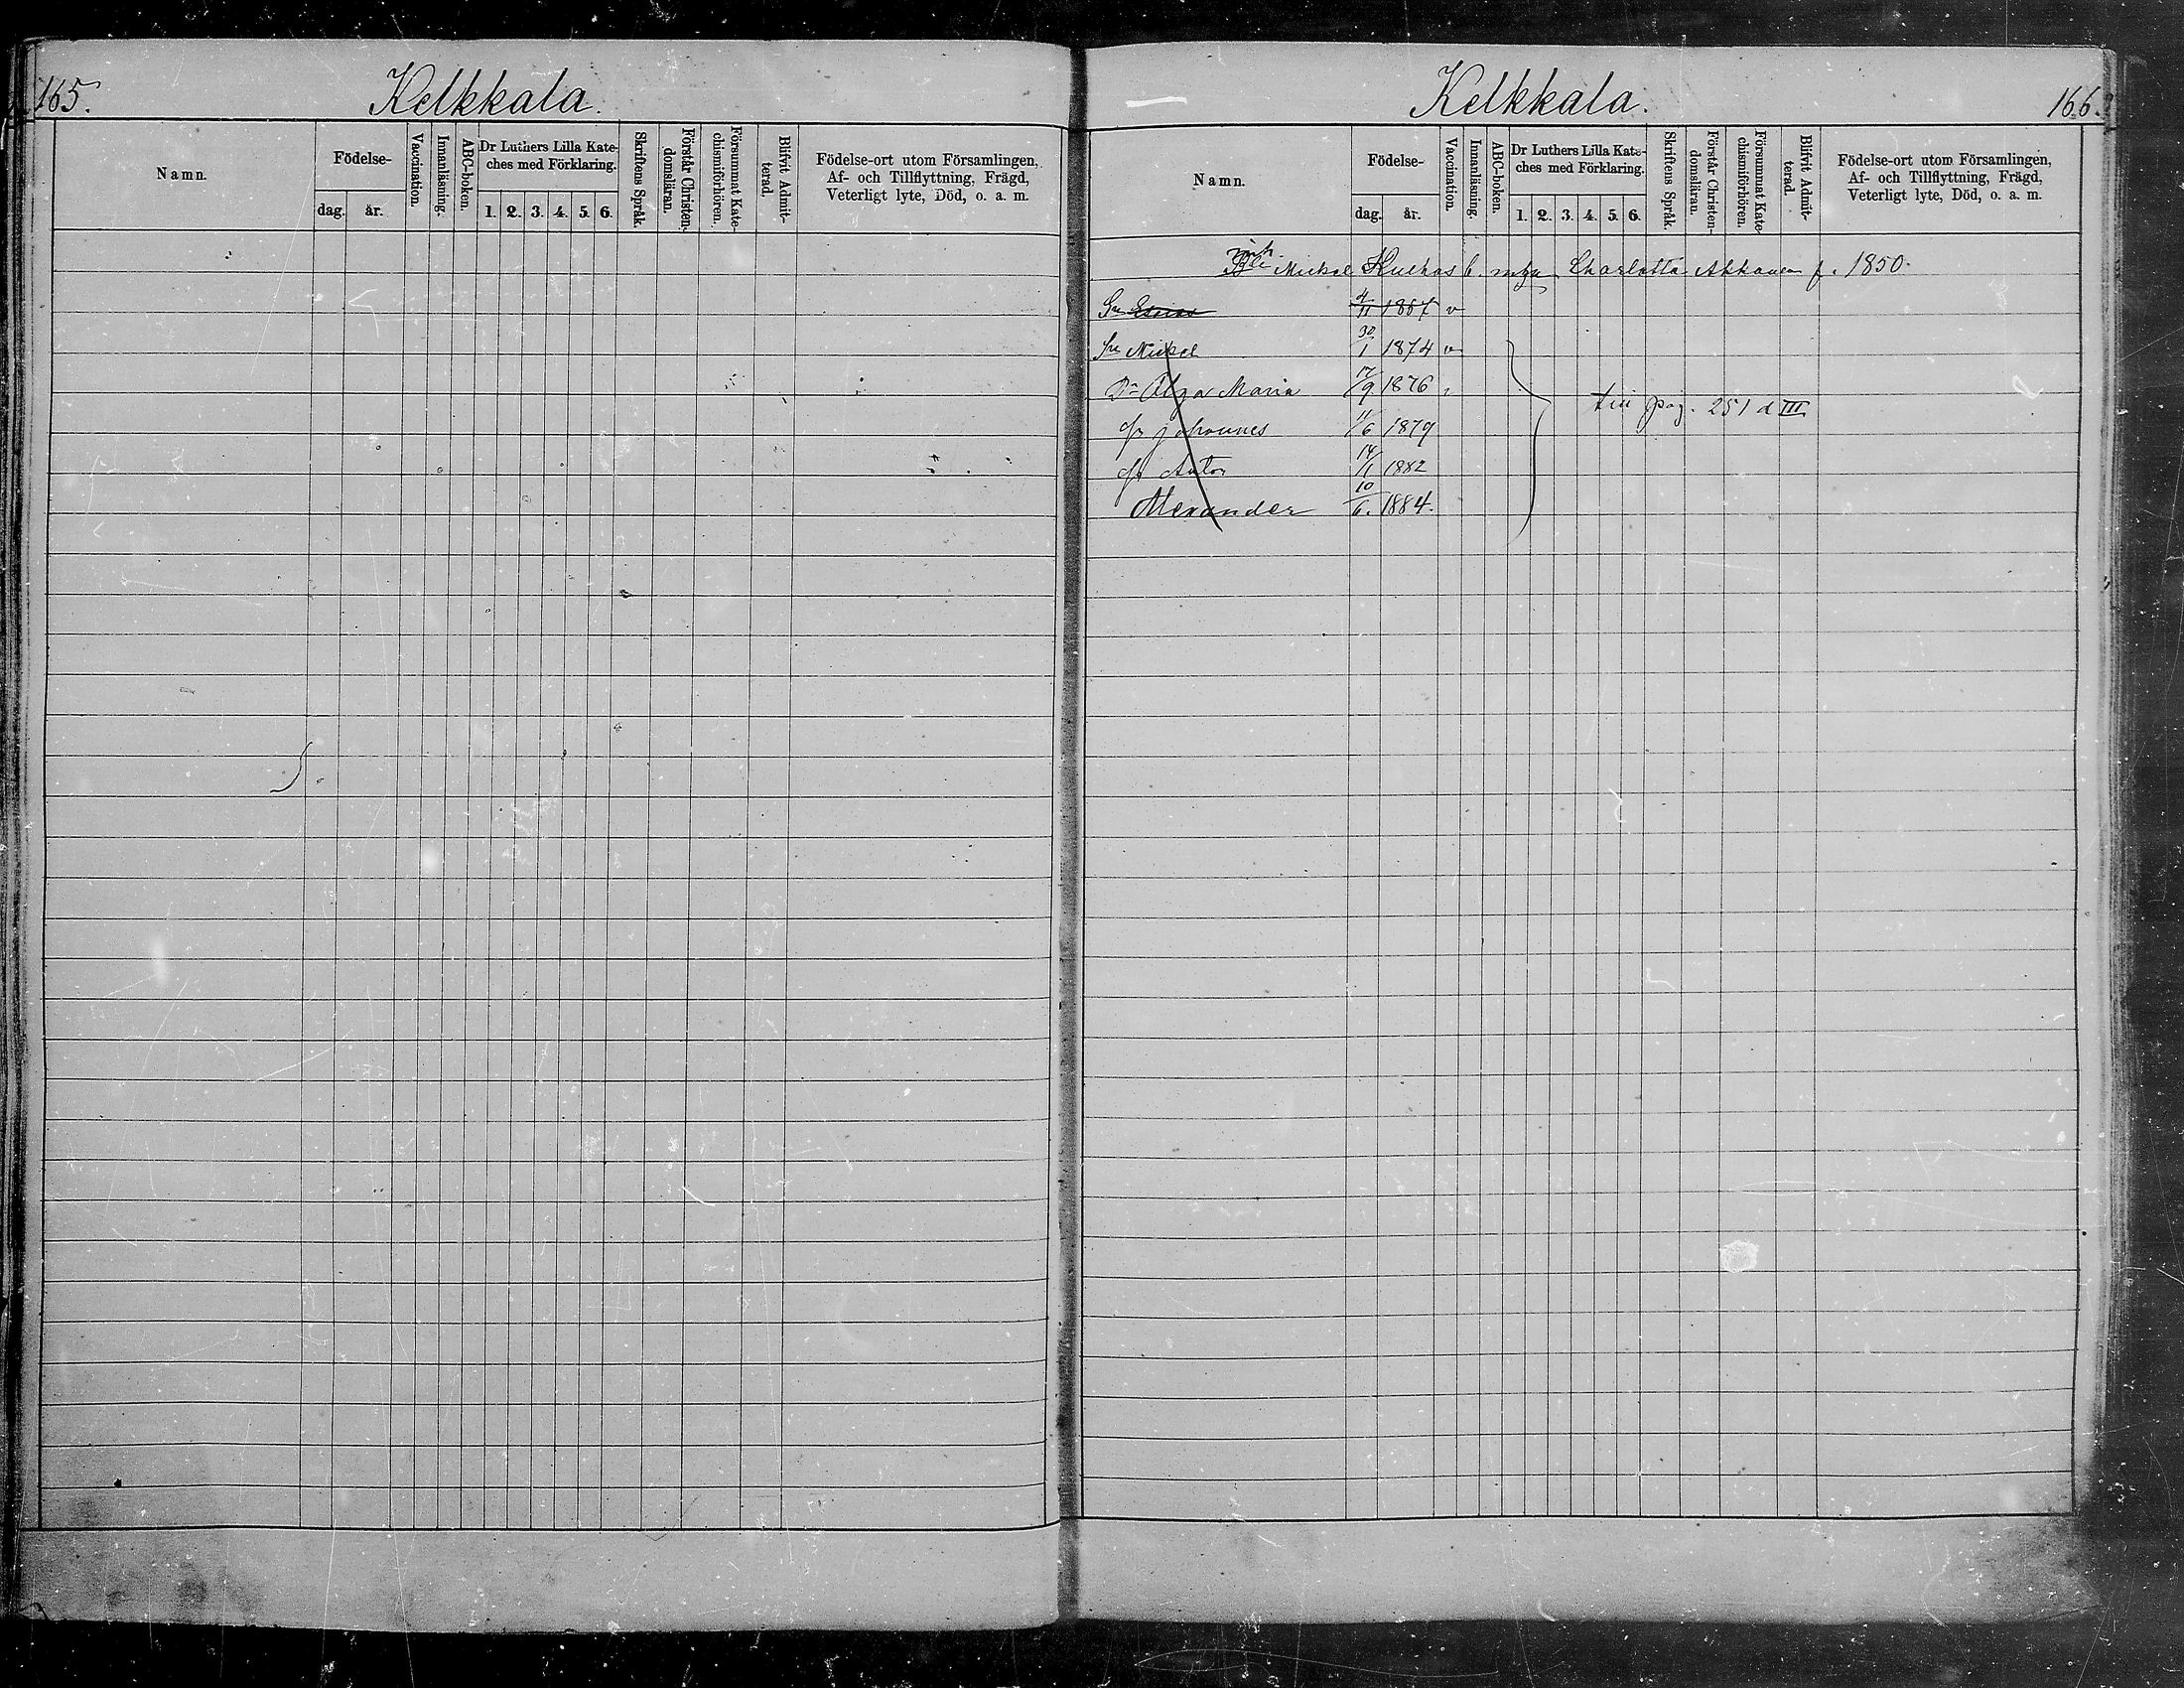 165.
Kelkkala.
Namn.
Födelse-
dag.
år.
Vaccination.
Innanläsning.
ABC-boken.
Dr Luthers Lilla Kate-
ches med Förklaring.
1. 2. 3. 4. 5. 6.
Skriftens Språk.
Förstår Christen-
domsläran.
Försummat Kate-
chismiförhören.
Blifvit Admit-
terad.
Födelse-ort utom Församlingen,
Af- och Tillflyttning, Frägd,
Veterligt lyte, Död, o. a. m.
Kelkkala.
166.
Namn.
Födelse-
dag.
år.
Vaccination.
Innanläsning.
ABC-boken.
Dr Luthers Lilla Kate-
ches med Förklaring.
1. 2. 3. 4. 5. 6.
Skriftens Språk.
Förstår Christen-
domsläran.
Försummat Kate-
chismiförhören.
Blifvit Admit-
terad.
Födelse-ort utom Församlingen,
Af- och Tillflyttning, Frägd,
Veterligt lyte, Död, o. a. m.
Mickel Charlotta f. 1850.
Sn 4/11 1867 v
Sn Mickel 30/1 1874 v
Dr Olga Maria 17/9 1876
Johannes 11/6 1879
Anton 14/1 1882
Alexander 10/6. 1884.
pag. 251 d III